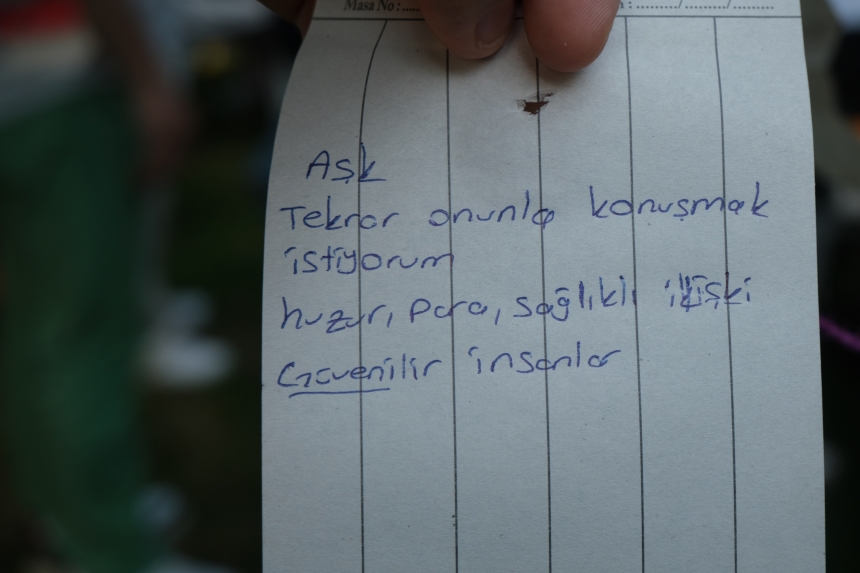 Masa No :....... : ........./........./.........
Aşk
Tekrar onunla konuşmak
istiyorum
huzur, para, sağlıklı ilişki
Güvenilir insanlar